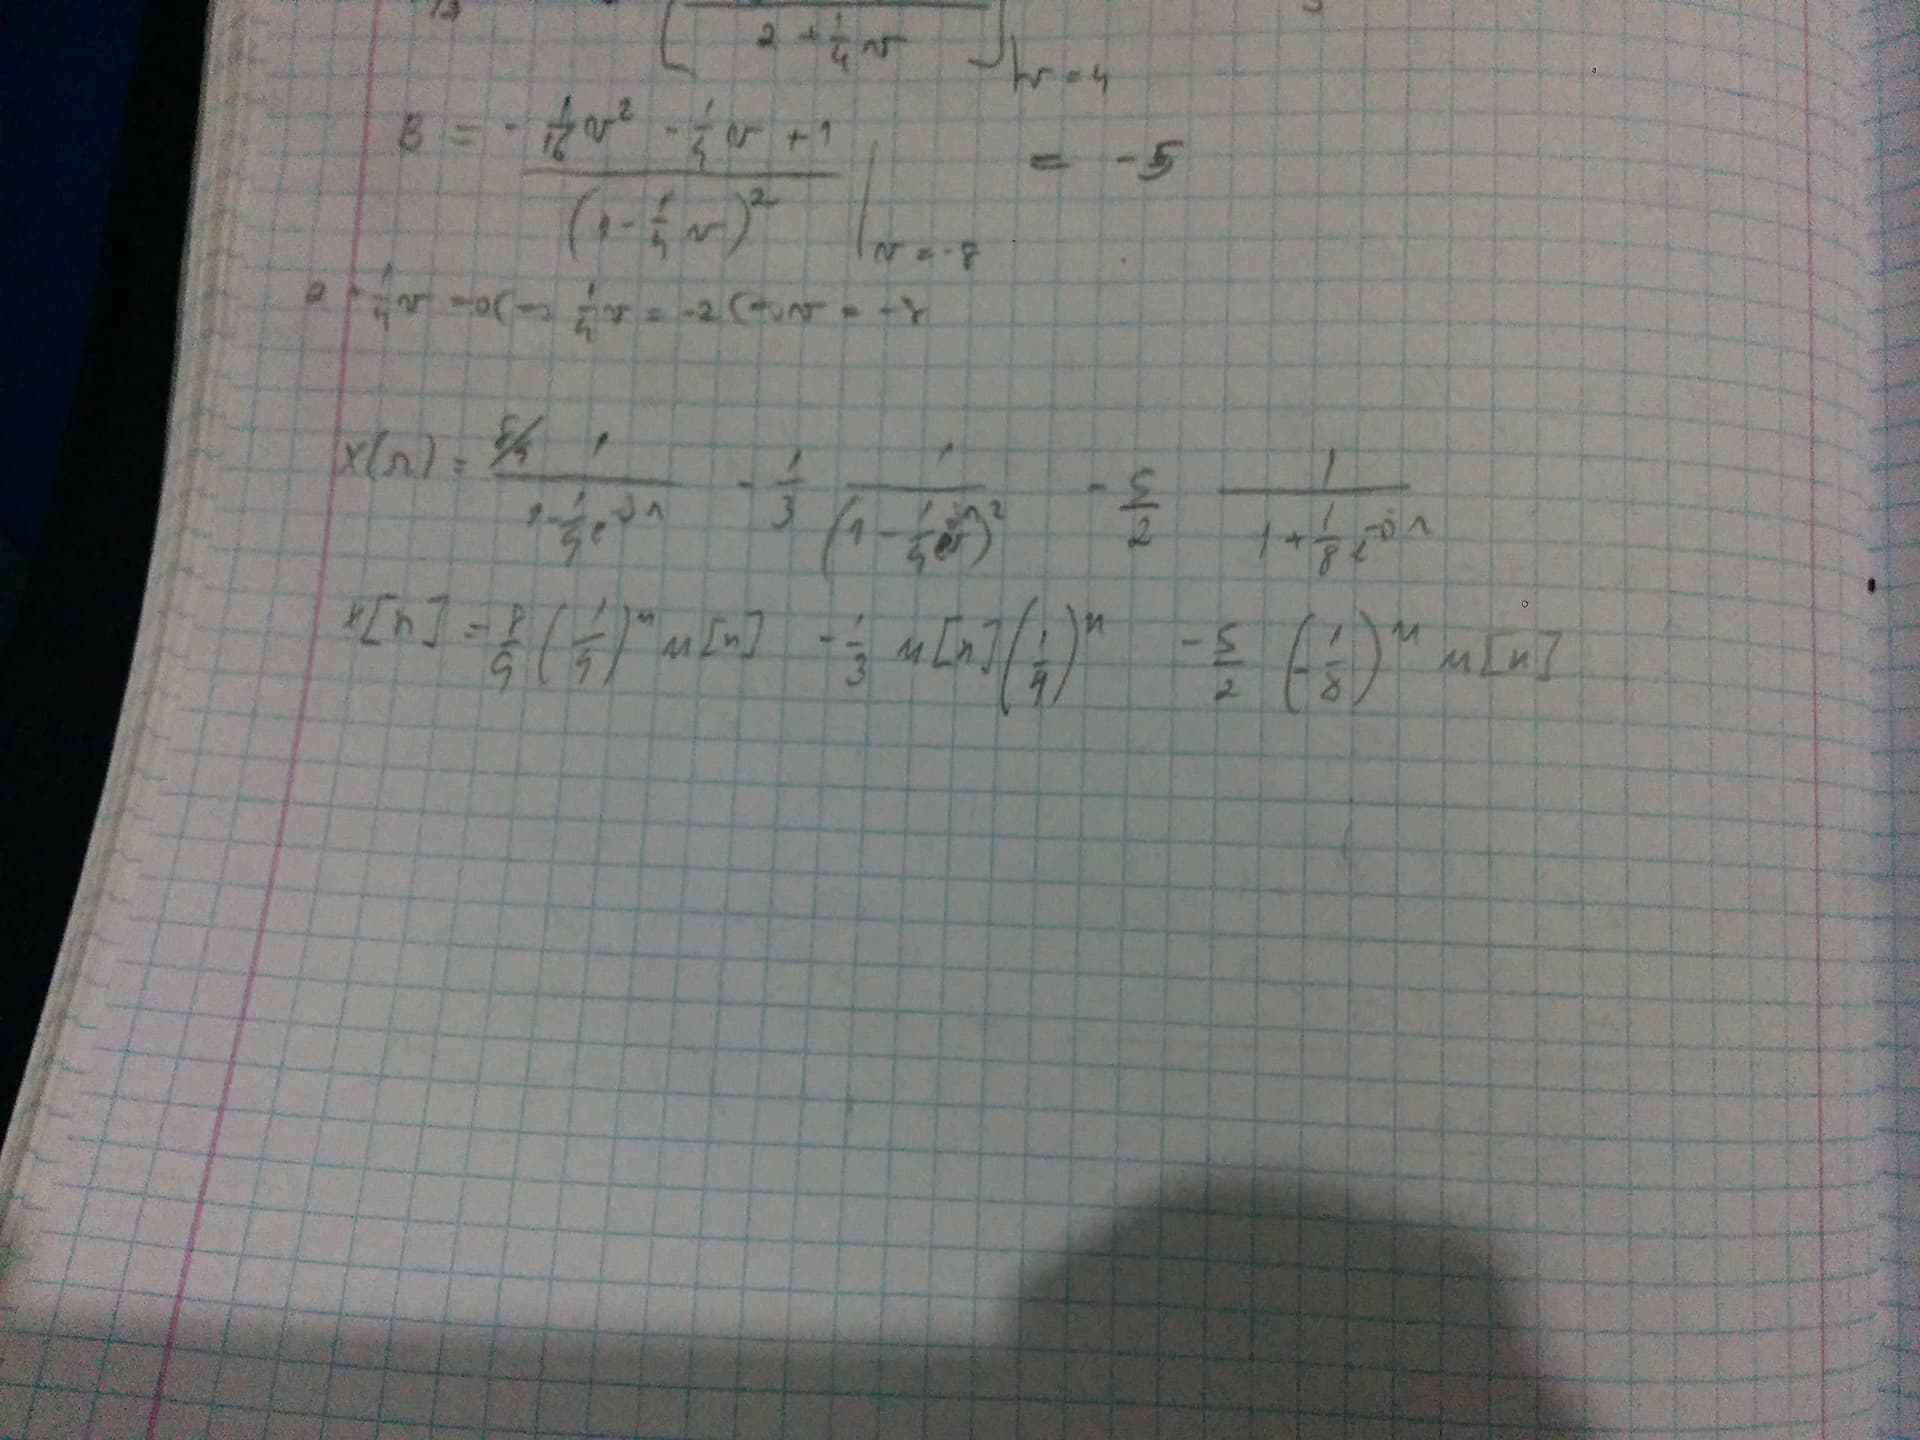 2 + 1/4 v |v = 4
B = - 1/16 v² - 1/4 v + 1 / (1 - 1/4 v)² | v = -8 = -5
1/4 v = 0 (=) 1/4 v = -2 (=) v = -8
X(Ω) = 8/9 1 / 1 - 1/4 e^-jΩ - 1/3 1 / (1 - 1/4 )² - 5/2 1 / 1 + 1/8 e^-jΩ
x[n] = 8/9 (1/4)^n u[n] - 1/3 u[n] (1/4)^n - 5/2 (-1/8)^n u[n]